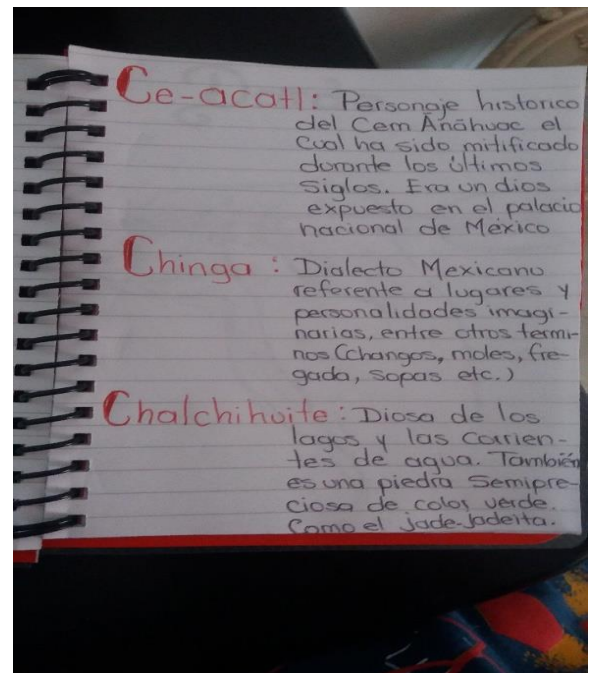 Ce-acatl: Personaje historico
del Cem Anáhuac el
cual ha sido mitificado
durante los últimos
siglos. Era un dios
expuesto en el palacio
nacional de México
Chinga: Dialecto Mexicano
referente a lugares y
personalidades imagi-
narias, entre otros termi-
nos (changos, moles, fre-
gada, sopas etc.)
Chalchihuite: Diosa de los
lagos y las corrien-
tes de agua. También
es una piedra semipre-
ciosa de color verde.
Como el jade-Jadeita.